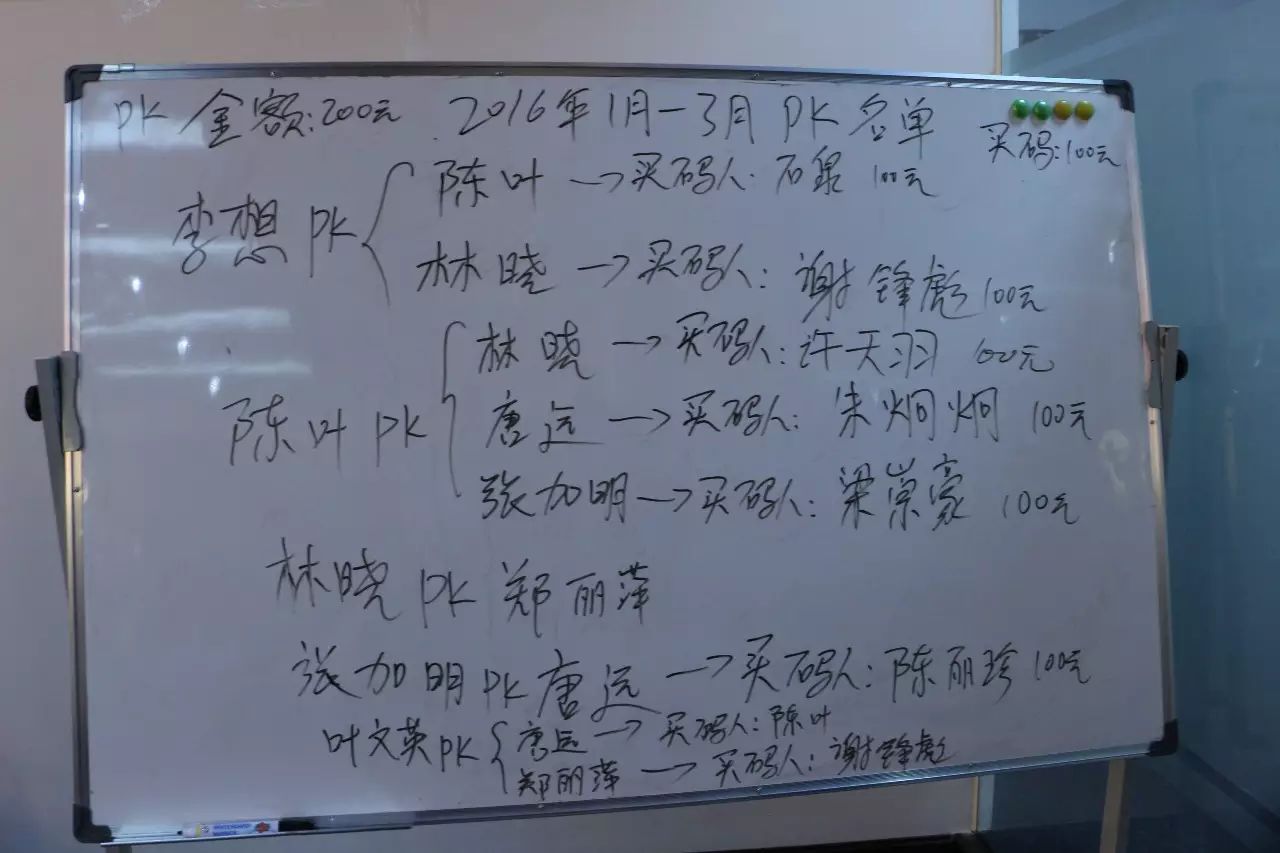 PK 金额:200元 2016年1月-3月 PK 名单
买码:100元
李想 PK
陈叶 → 买码人: 石泉 100元
林晓 → 买码人: 谢锋彪 100元
陈叶 PK
林晓 → 买码人: 许天羽 100元
唐远 → 买码人: 朱炯炯 100元
张加明 → 买码人: 梁崇豪 100元
林晓 PK 郑丽萍
张加明 PK 唐远 → 买码人: 陈丽珍 100元
叶文英 PK
唐远 → 买码人: 陈叶
郑丽萍 → 买码人: 谢锋彪